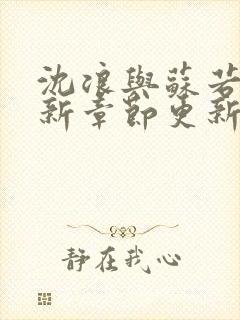 沈浪與蘇若
新章節更新
靜在我心